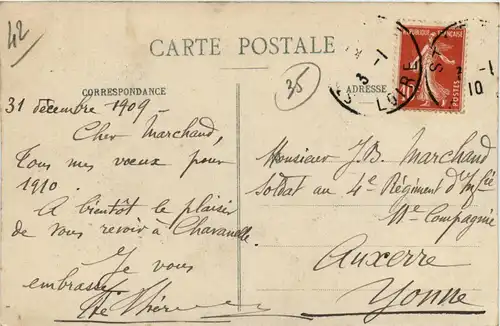 42
CARTE POSTALE
35
CORRESPONDANCE
ADRESSE
RÉPUBLIQUE FRANÇAISE
POSTES
LOIRE
3 -1
10
31 décembre 1909 -
Cher Marchand,
Tous mes vœux pour
1910.
A bientôt le plaisir
de vous revoir à Chavanelle
Je vous
embrasse
Monsieur J.B. Marchand
Soldat au 4e Régiment d'Infie
11e Compagnie
Auxerre
Yonne